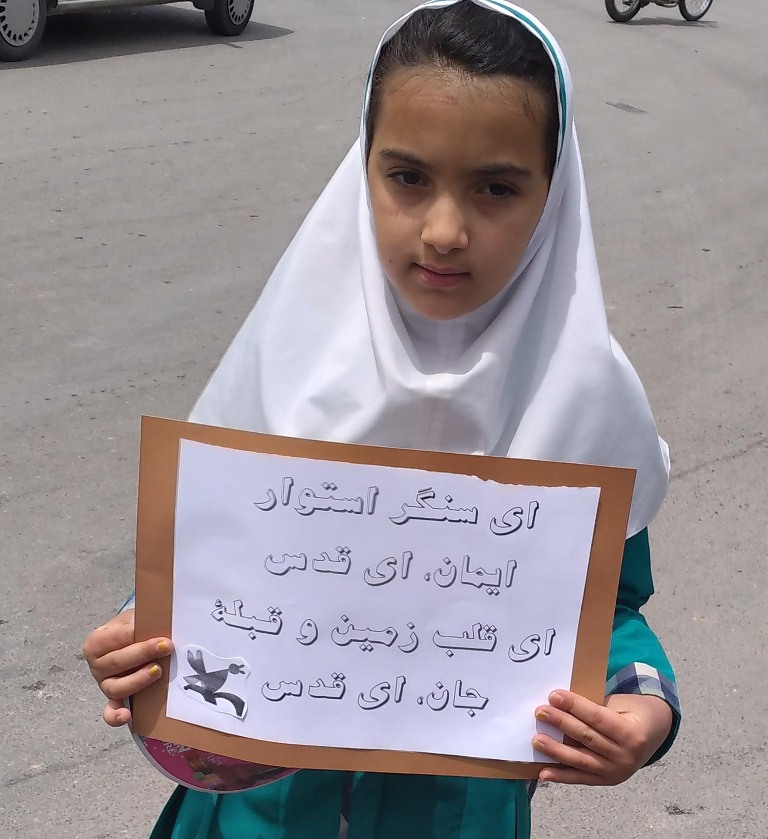 ای سنگر استوار
ایمان، ای قدس
ای قلب زمین و قبلهٔ
جان، ای قدس